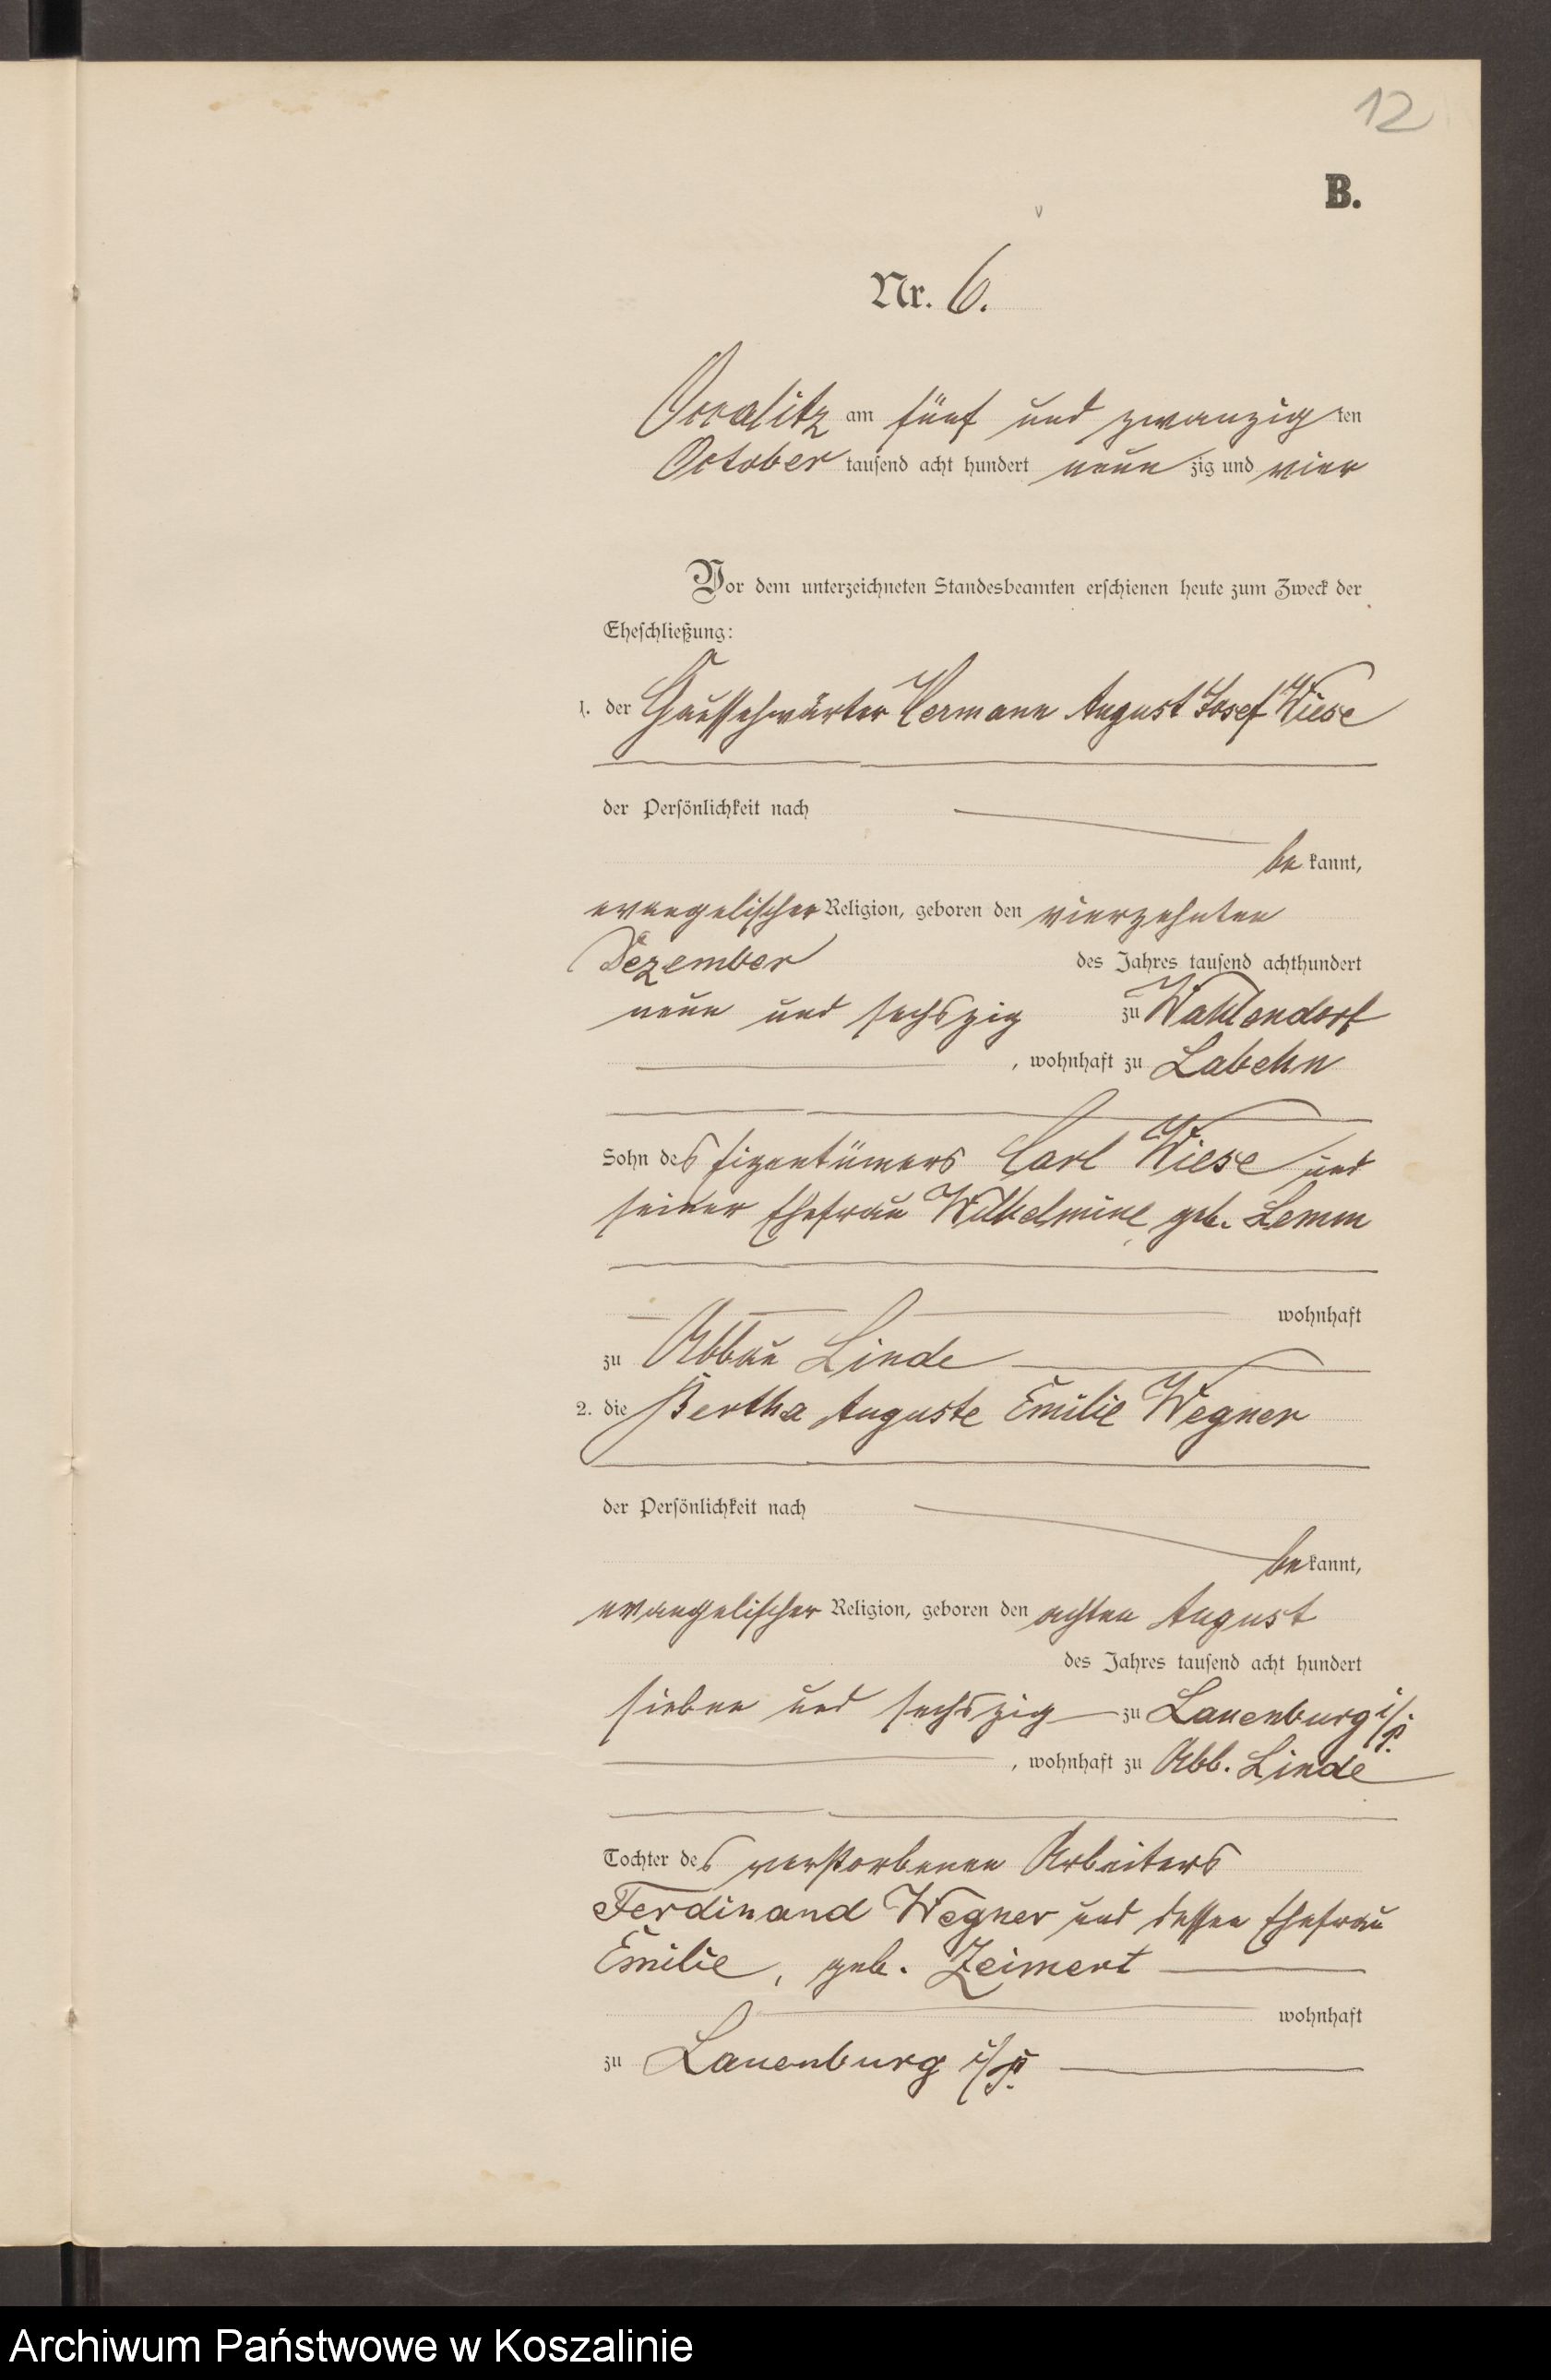 12
B.
Nr. 6.
Occalitz am fünf und zwanzig ten
October tausend acht hundert neun zig und vier
Vor dem unterzeichneten Standesbeamten erschienen heute zum Zweck der
Eheschließung:
1. der Hermann August Josef Wiese
der Persönlichkeit nach
be kannt,
evangelischer Religion, geboren den vierzehnten
Dezember des Jahres tausend achthundert
neun und sechszig zu Wahlendorf
, wohnhaft zu Labehn
Sohn des Eigentümers Carl Wiese und
seiner Ehefrau Wilhelmine geb. Lemm
wohnhaft
zu Abbau Linde
2. die Bertha Auguste Emilie Wegner
der Persönlichkeit nach
be kannt,
evangelischer Religion, geboren den achten August
des Jahres tausend acht hundert
sieben und sechszig zu Lauenburg i/P.
, wohnhaft zu Abb. Linde
Tochter des verstorbenen Arbeiters
Ferdinand Wegner und dessen Ehefrau
Emilie, geb. Zeimert
wohnhaft
zu Lauenburg i/P.
Archiwum Państwowe w Koszalinie